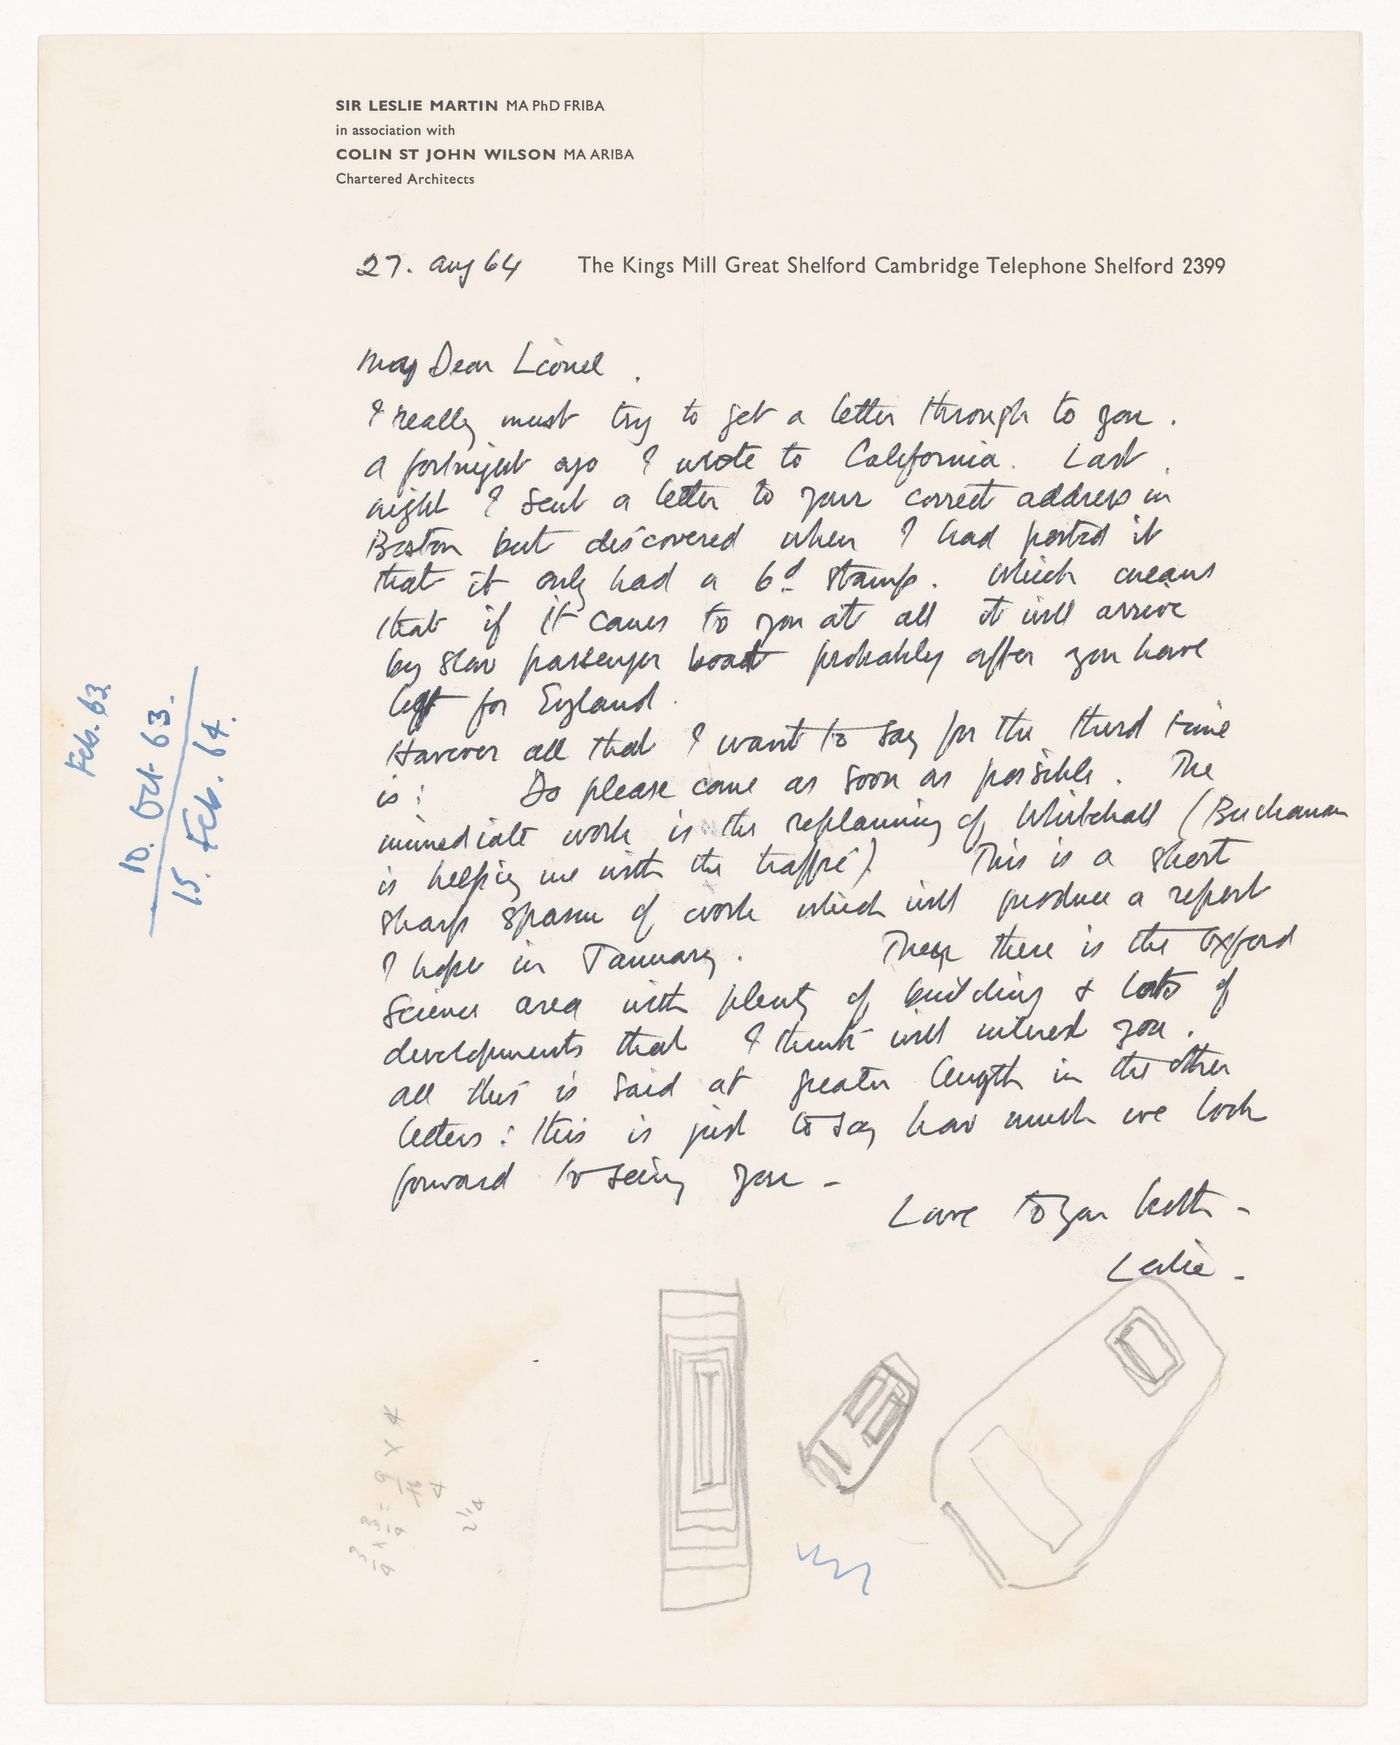 SIR LESLIE MARTIN MA PhD FRIBA
in association with
COLIN ST JOHN WILSON MA ARIBA
Chartered Architects
27. Aug 64 The Kings Mill Great Shelford Cambridge Telephone Shelford 2399
My Dear Lionel.
I really must try to get a letter through to you.
A fortnight ago I wrote to California. Last
night I sent a letter to your correct address in
Boston but discovered when I had posted it
that it only had a 6d stamp. Which means
that if it comes to you at all it will arrive
by slow passenger boat probably after you have
left for England.
However all that I want to say for the third time
is: Do please come as soon as possible. The
immediate work is the replanning of Whitehall (Buchanan
is helping me with the traffic) This is a short
sharp spasm of work which will produce a report
I hope in January. Then there is the Oxford
Science area with plenty of building & lots of
developments that I think will interest you.
All this is said at greater length in the other
letters: this is just to say how much we look
forward to seeing you -
Love to you both -
Leslie -
Feb. 63
10. Oct 63.
15. Feb. 64.
3/4 x 3/4 = 9/16 x 4
4
2 1/4